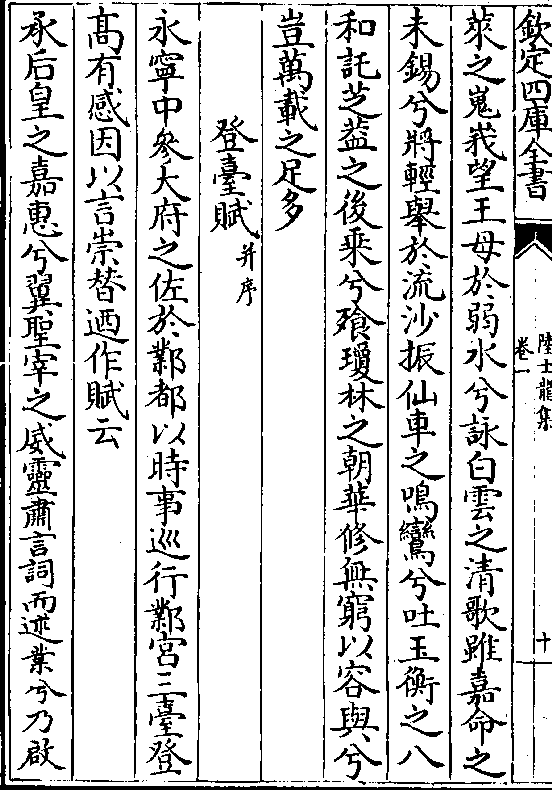 欽定四庫全書
陸士龍集
卷一
十
萊之嵬峩望王母於弱水兮詠白雲之清歌雖嘉命之
未錫兮將輕舉於流沙振仙車之鳴鸞兮吐玉衡之八
和託芝葢之後乘兮飱瓊林之朝華修無窮以容與兮
豈萬載之足多
登臺賦并序
永寧中叅大府之佐於鄴都以時事巡行鄴宫三臺登
髙有感因以言崇替廼作賦云
承后皇之嘉惠兮翼聖宰之威靈肅言詞而述業兮乃啟